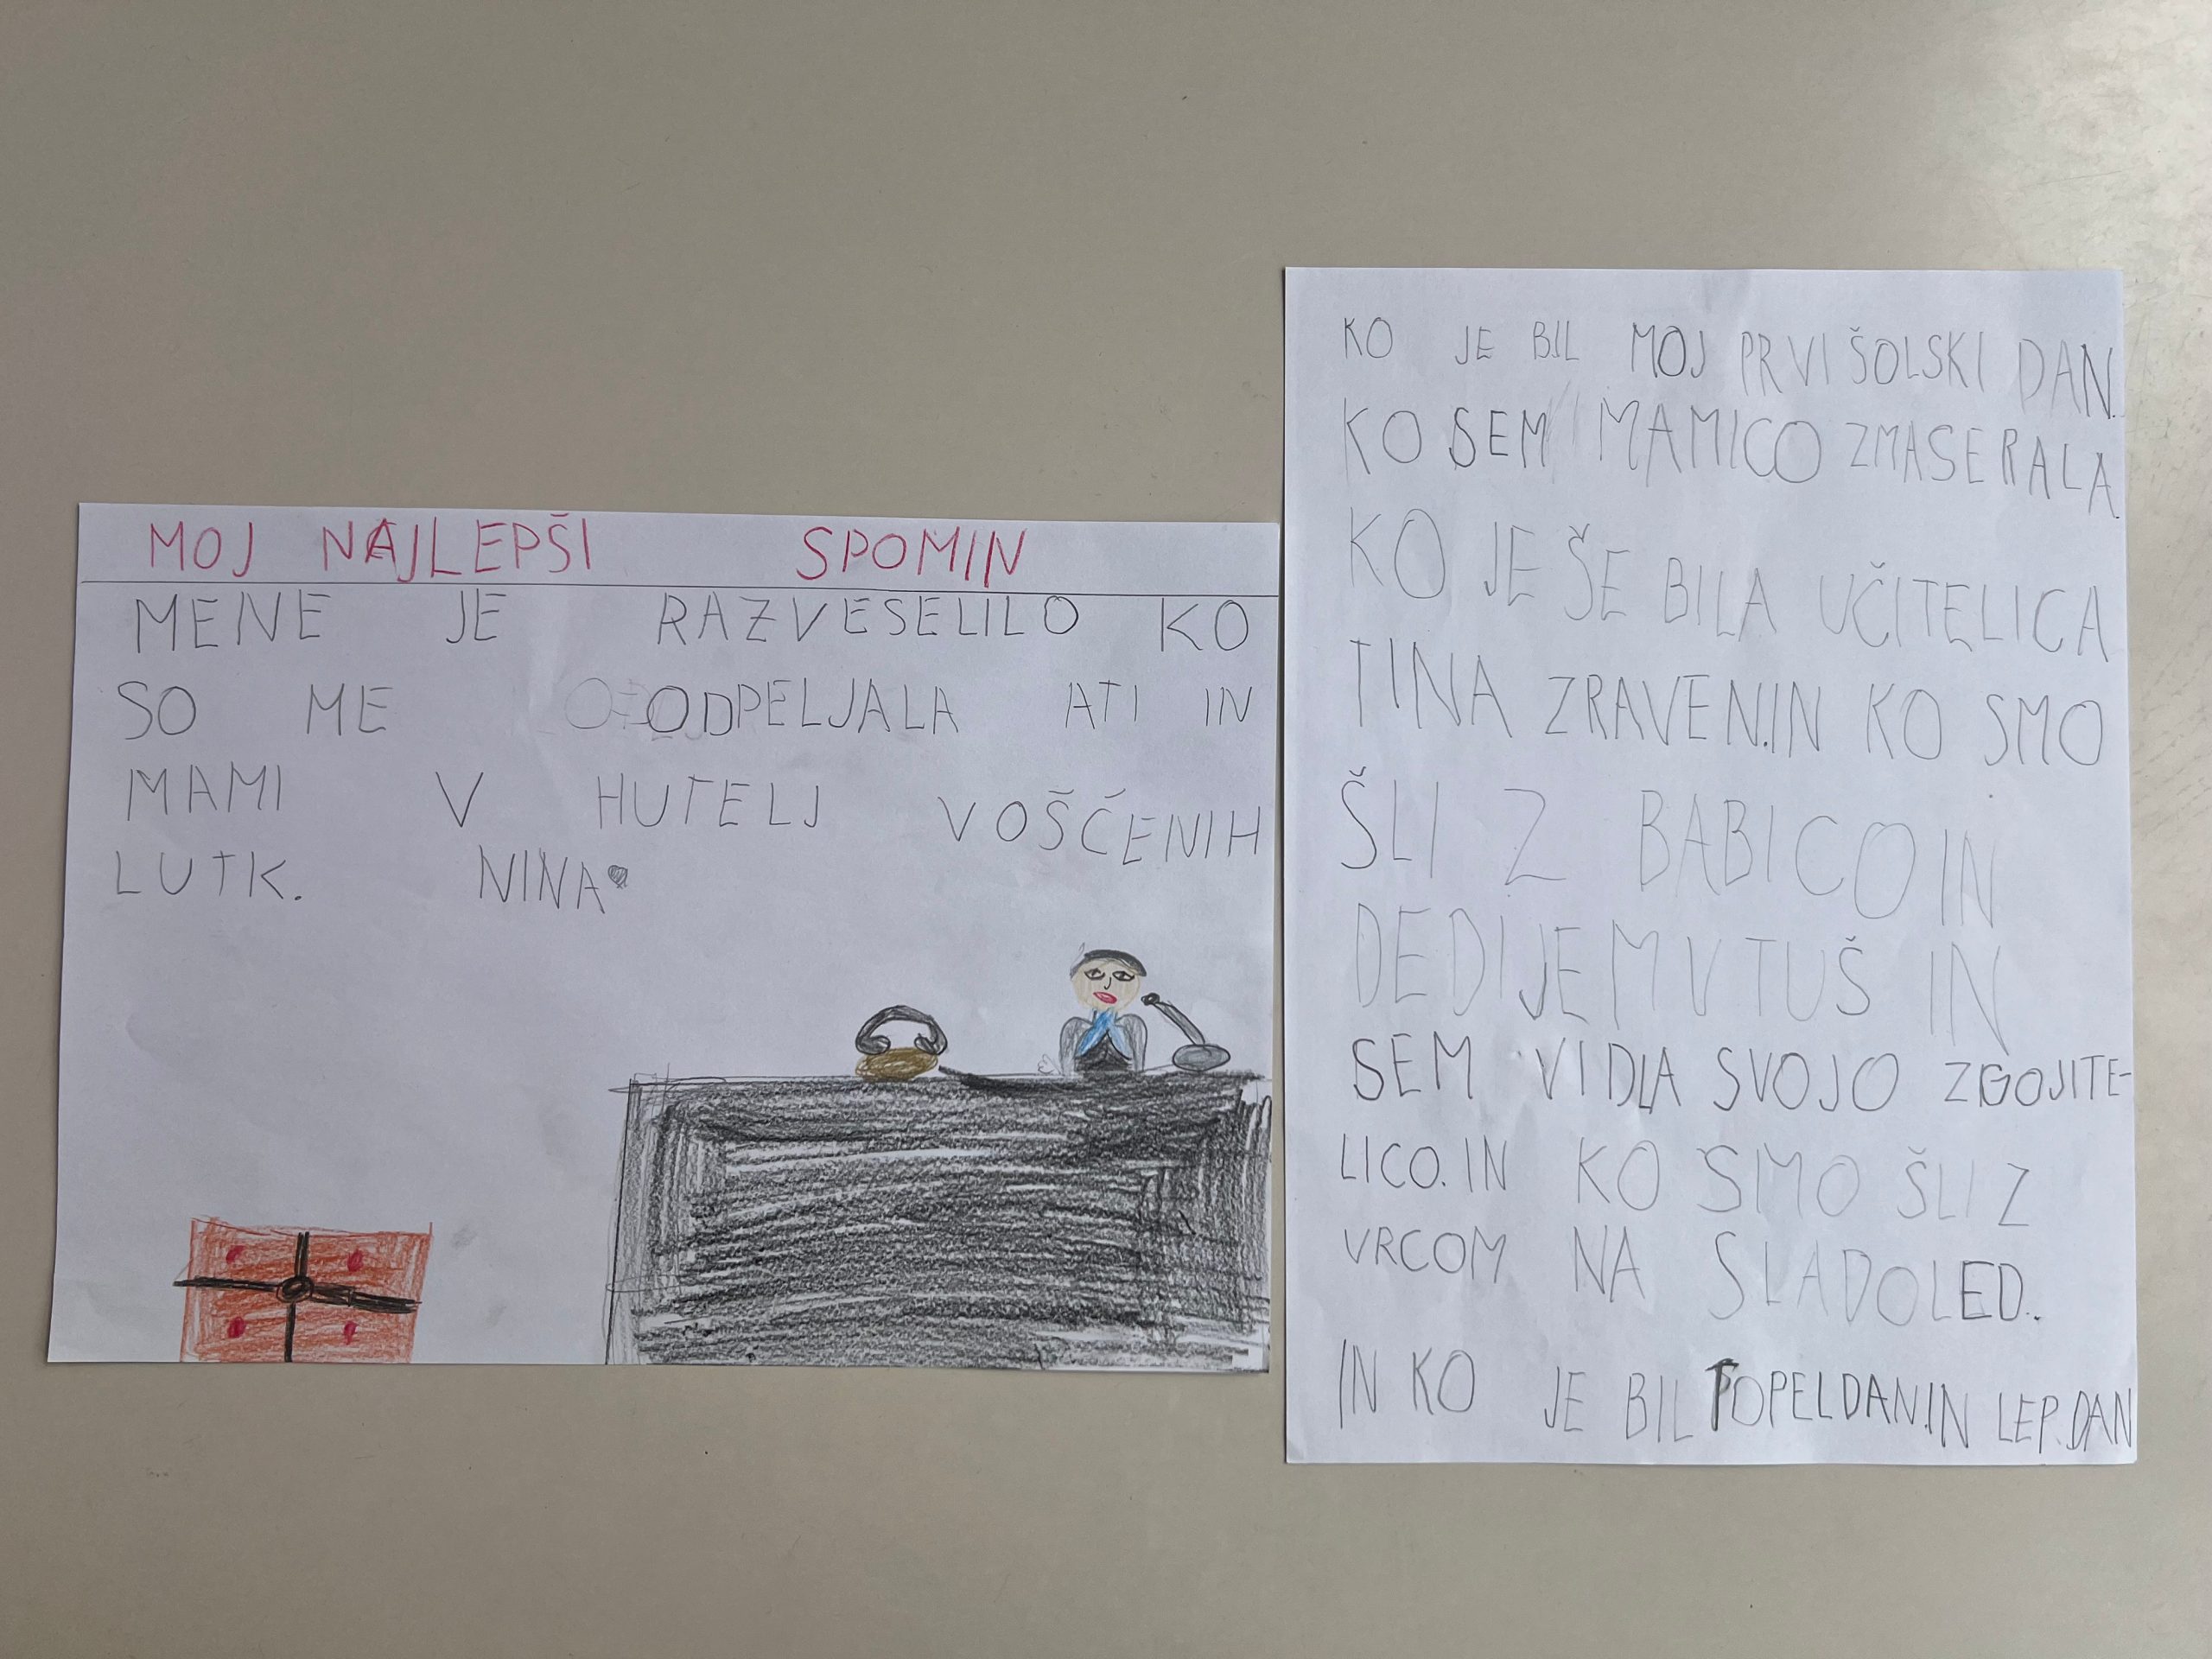 MOJ NAJLEPŠI SPOMIN
MENE JE RAZVESELILO KO
SO ME ODPELJALA ATI IN
MAMI V HUTELJ VOŠČENIH
LUTK. NINA
KO JE BIL MOJ PRVI ŠOLSKI DAN.
KO SEM MAMICO ZMASERALA.
KO JE ŠE BILA UČITELICA
TINA ZRAVEN.IN KO SMO
ŠLI Z BABICO IN
DEDIJEM V TUŠ IN
SEM VIDLA SVOJO ZGOJITE-
LICO. IN KO SMO ŠLI Z
VRCOM NA SLADOLED..
IN KO JE BIL TOPEL DAN.IN LEP.DAN